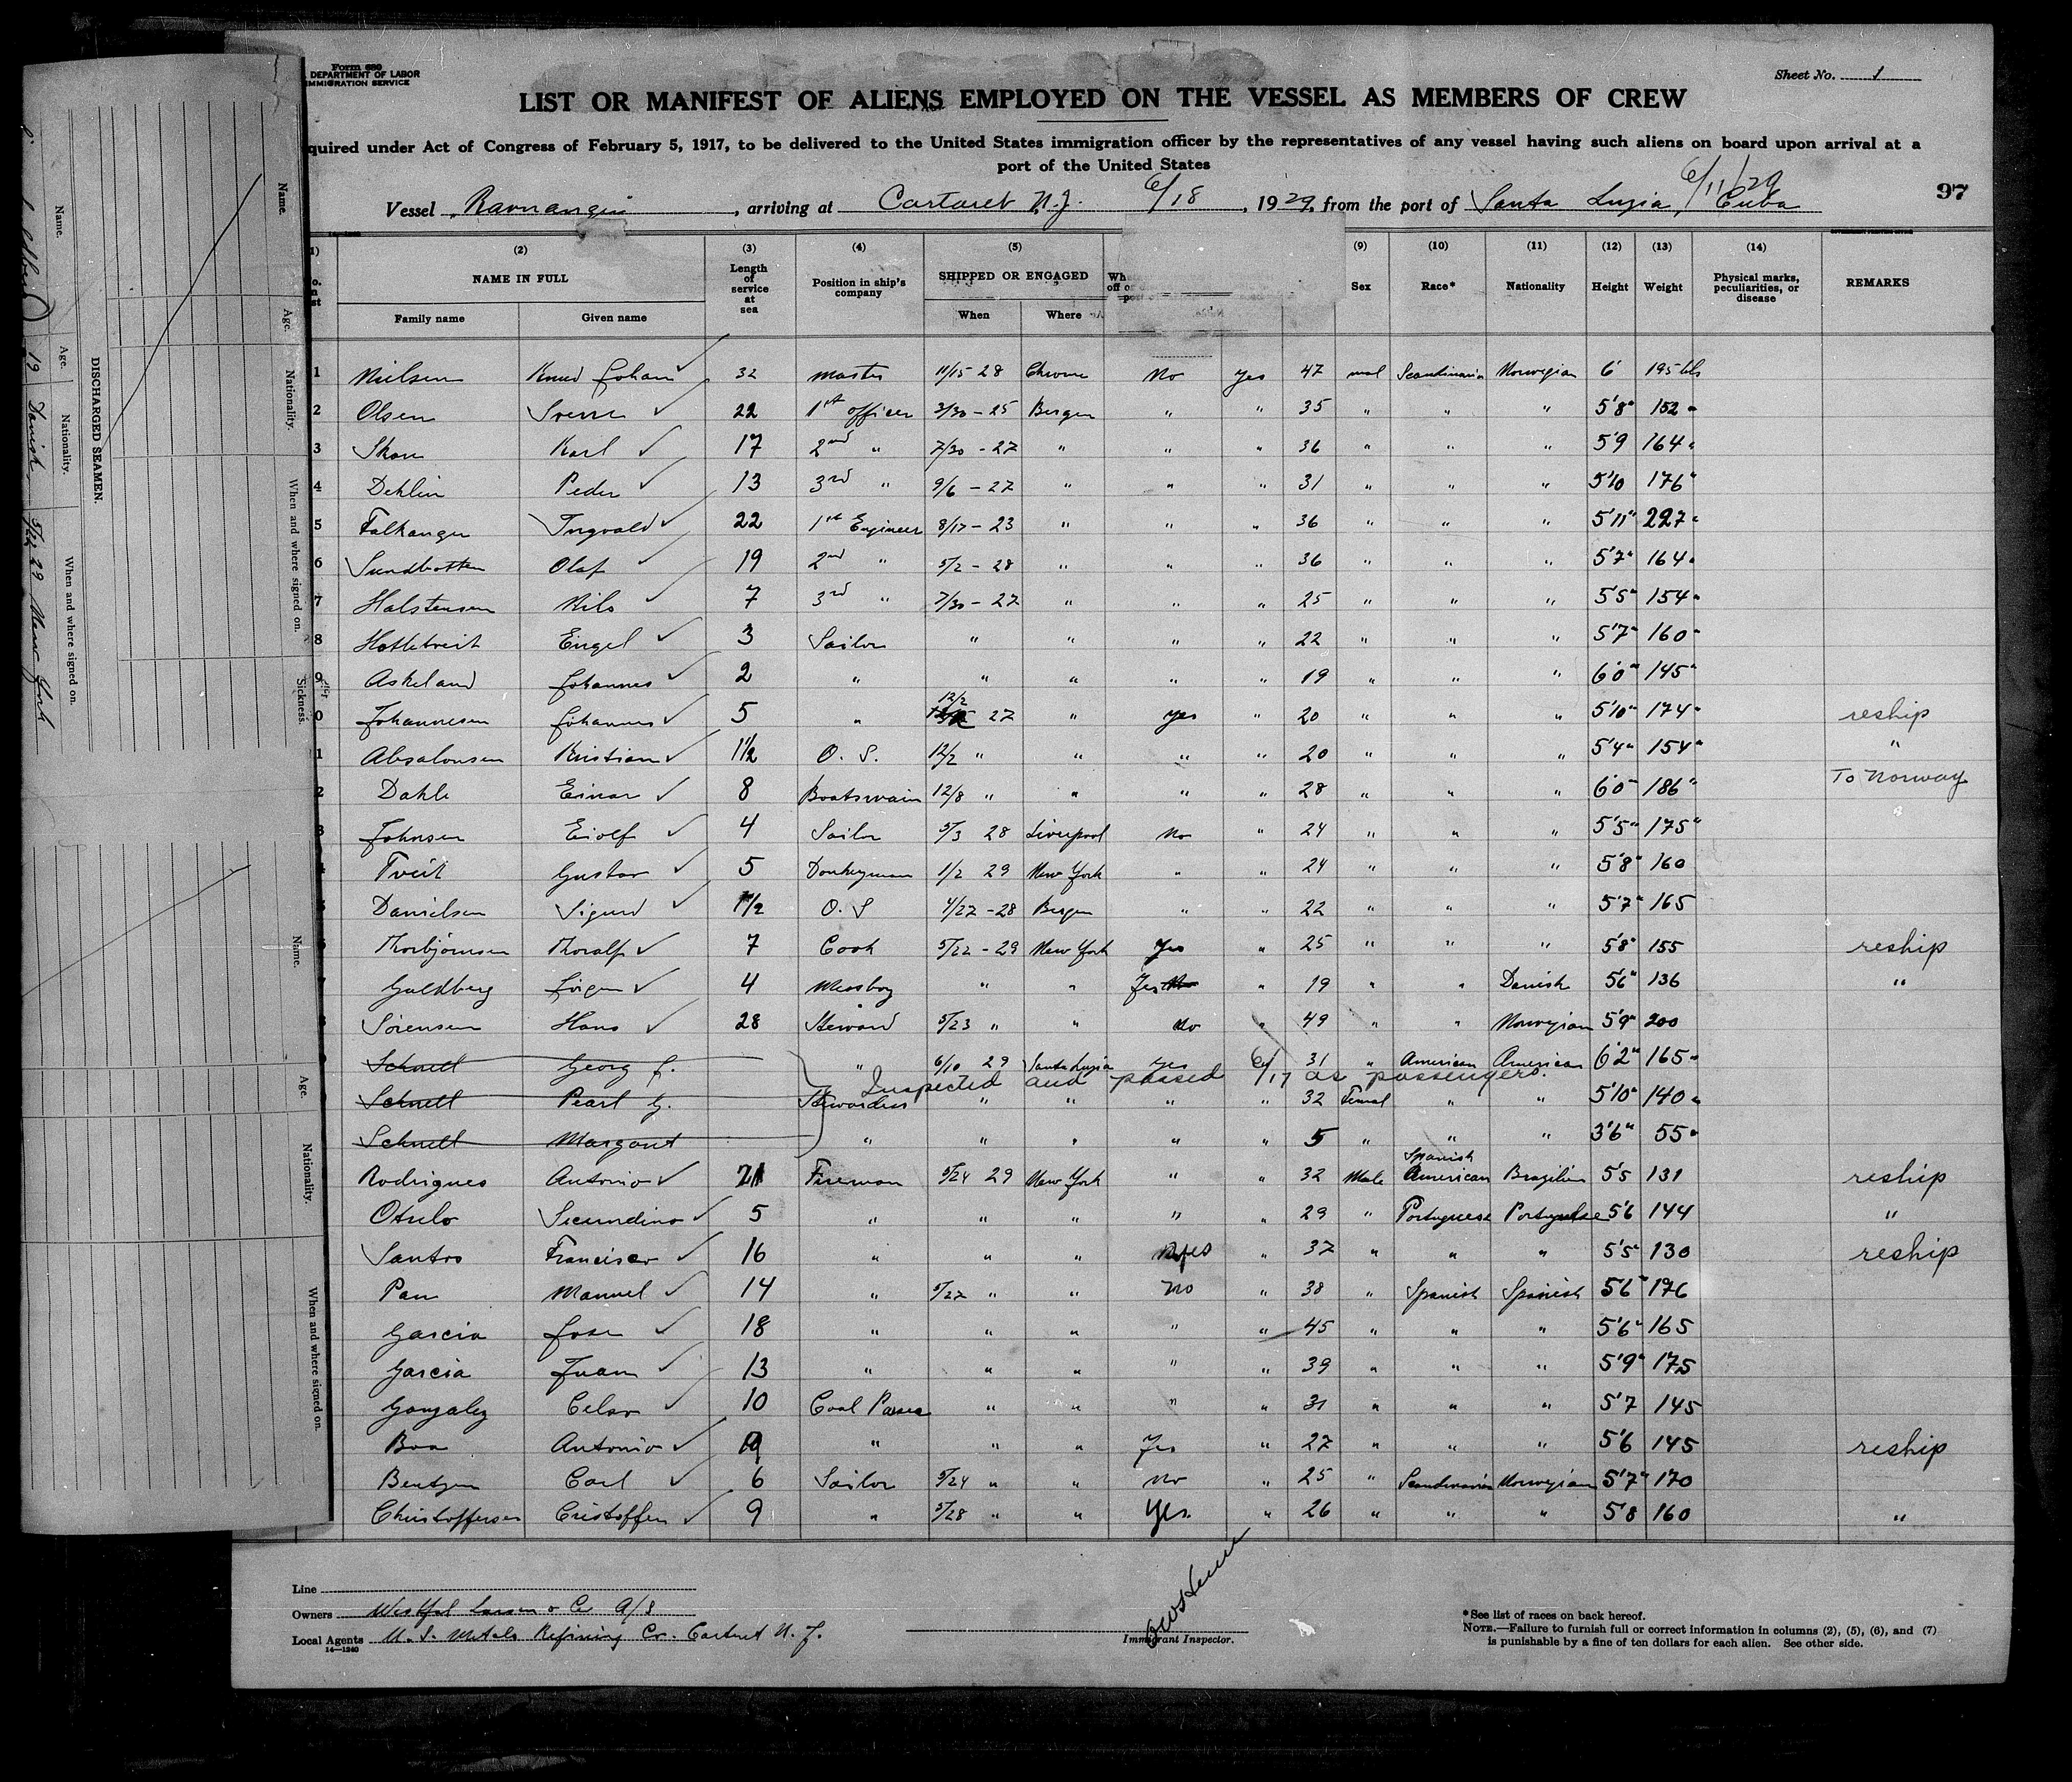 Form 680
DEPARTMENT OF LABOR
IMMIGRATION SERVICE
Sheet No. 1
LIST OR MANIFEST OF ALIENS EMPLOYED ON THE VESSEL AS MEMBERS OF CREW
quired under Act of Congress of February 5, 1917, to be delivered to the United States immigration officer by the representatives of any vessel having such aliens on board upon arrival at a
port of the United States
Vessel Ravnanger, arriving at Cartaret N.J. 6/18, 1929, from the port of Santa Luzia, Cuba 6/11/29
97
(1) (2) (3) (4) (5) (9) (10) (11) (12) (13) (14)
NAME IN FULL Length of service at sea Position in ship's company SHIPPED OR ENGAGED Sex Race* Nationality Height Weight Physical marks, peculiarities, or disease REMARKS
Family name Given name When Where
1 Nielsen Knud Johan 32 Master 11/15 28 Chrome No yes 47 mal Scandinavia Norwegian 6' 195 lbs
2 Olsen Sverre 22 1st officer 3/30 - 25 Bergen " " 35 " " " 5'8" 152 "
3 Skare Karl 17 2nd " 7/30 - 27 " " " 36 " " " 5'9 164 "
4 Dehlin Peder 13 3rd " 9/6 - 27 " " " 31 " " " 5'10 176 "
5 Falkanger Ingvald 22 1st Engineer 8/17 - 23 " " " 36 " " " 5'11" 227 "
6 Sundbotten Olaf 19 2nd " 5/2 - 28 " " " 36 " " " 5'7" 164 "
7 Halstensen Nils 7 3rd " 7/30 - 27 " " " 25 " " " 5'5" 154 "
8 Eingel 3 Sailor " " " " 22 " " " 5'7" 160 "
9 Askeland Johannes 2 " " " " " 19 " " " 6'0" 145 "
0 Johannesen Johannes 5 " 12/2 27 " yes " 20 " " " 5'10" 174 " reship
1 Absalonsen Kristian 1 1/2 O. S. 12/2 " " " " 20 " " " 5'4" 154 " "
2 Dahle Einar 8 Boatswain 12/8 " " " " 28 " " " 6'0" 186 " To Norway
3 Johnsen Eiolf 4 Sailor 5/3 28 Liverpool No " 24 " " " 5'5" 175 "
4 Tveit Gustav 5 Donkeyman 1/2 29 New York " " 24 " " " 5'8" 160
5 Danielsen Sigurd 1 1/2 O. S 4/27 - 28 Bergen " " 22 " " " 5'7" 165
6 Thorbjörnsen Thoralf 7 Cook 5/22 - 29 New York Yes " 25 " " " 5'8" 155 reship
7 Guldberg Jörgen 4 Messboy " " Yes No " 19 " " Danish 5'6" 136 "
8 Sörensen Hans 28 Steward 5/23 " " No " 49 " " Norwegian 5'9" 200
Schnell Georg J. " 6/10 29 Santa Luzia yes " 31 " American American 6'2" 165 "
Inspected and passed 6/17 as passengers.
Schnell Pearl G. Stewardess " " " " 32 Femal " " 5'10" 140 "
Schnell Margaret " " " " " 5 " " " 3'6" 55 "
Rodrigues Antonio 21 Fireman 5/24 29 New York " " 32 Male Spanish American Brazilian 5'5 131 reship
Otrelo Secundino 5 " " " " " 29 " Portuguese Portuguese 5'6 144 "
Santos Francisco 16 " " " yes " 37 " " " 5'5" 130 reship
Pan Manuel 14 " 5/27 " " No " 38 " Spanish Spanish 5'6" 176
Garcia Jose 18 " " " " " 45 " " " 5'6" 165
Garcia Juan 13 " " " " " 39 " " " 5'9" 175
Gonzalez Celso 10 Coal Passer " " " " 31 " " " 5'7 145
Boa Antonio 9 " " " Yes " 27 " " " 5'6 145 reship
Bentzen Carl 6 Sailor 5/24 " " No " 25 " Scandinavia Norwegian 5'7" 170
Christoffersen Cristoffer 9 " 5/28 " " Yes. " 26 " " " 5'8 160 "
Line
Owners Westfal Larsen & Co A/S
Local Agents U. S. Metals Refining Co. Carteret N. J.
14-1240
Immigrant Inspector.
*See list of races on back hereof.
NOTE.—Failure to furnish full or correct information in columns (2), (5), (6), and (7)
is punishable by a fine of ten dollars for each alien. See other side.
DISCHARGED SEAMEN.
Name. Age. Nationality. When and where signed on.
19 Danish 5/22 29 New York
Name. Age. Nationality. When and where signed on.
Sickness.
Name. Age. Nationality. When and where signed on.